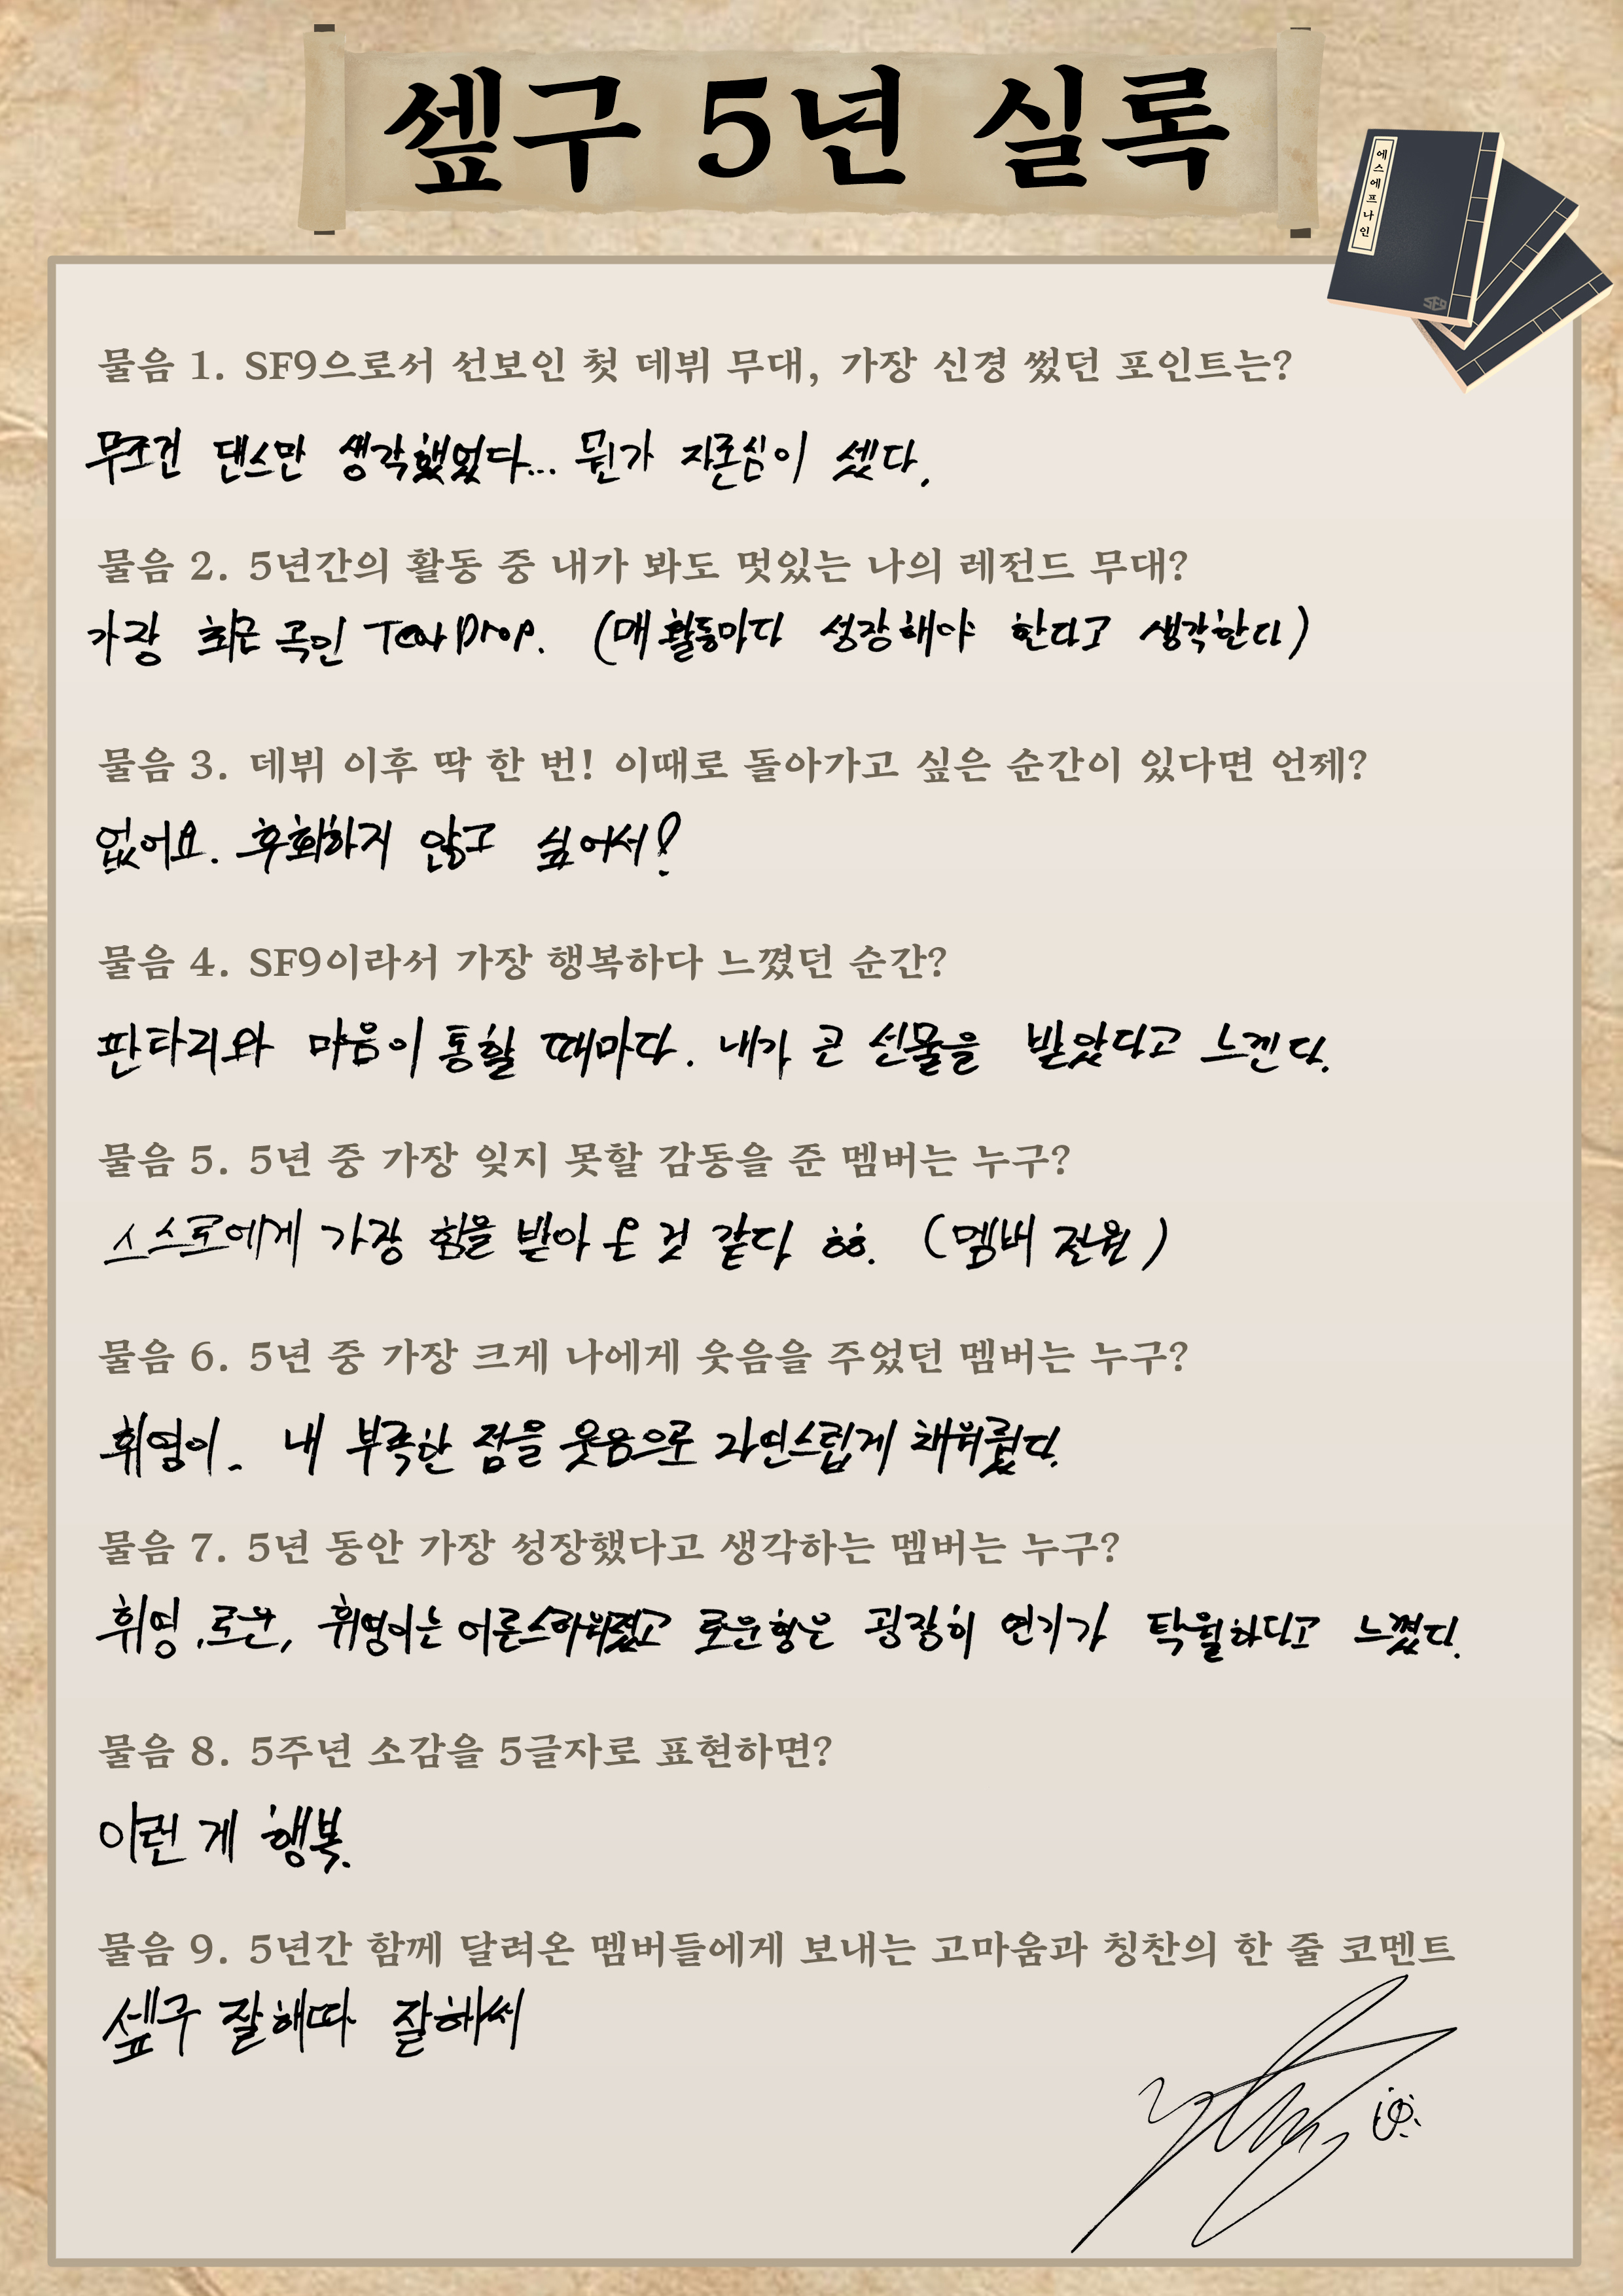 셒구 5년 실록
에스에프나인
SF9
물음 1. SF9으로서 선보인 첫 데뷔 무대, 가장 신경 썼던 포인트는?
무조건 댄스만 생각했었다... 뭔가 자존심이 셌다.
물음 2. 5년간의 활동 중 내가 봐도 멋있는 나의 레전드 무대?
가장 최근 곡인 Tear Drop. (매 활동마다 성장해야 한다고 생각한다)
물음 3. 데뷔 이후 딱 한 번! 이때로 돌아가고 싶은 순간이 있다면 언제?
없어요. 후회하지 않고 싶어서!
물음 4. SF9이라서 가장 행복하다 느꼈던 순간?
판타지와 마음이 통할 때마다. 내가 큰 선물을 받았다고 느낀다.
물음 5. 5년 중 가장 잊지 못할 감동을 준 멤버는 누구?
스스로에게 가장 힘을 받아 온 것 같다 ㅎㅎ. (멤버 전원)
물음 6. 5년 중 가장 크게 나에게 웃음을 주었던 멤버는 누구?
휘영이. 내 부족한 점을 웃음으로 자연스럽게 채워줬다.
물음 7. 5년 동안 가장 성장했다고 생각하는 멤버는 누구?
휘영, 로운, 휘영이는 어른스러워졌고 로운형은 굉장히 연기가 탁월하다고 느꼈다.
물음 8. 5주년 소감을 5글자로 표현하면?
이런 게 행복.
물음 9. 5년간 함께 달려온 멤버들에게 보내는 고마움과 칭찬의 한 줄 코멘트
셒구 잘해따 잘해써